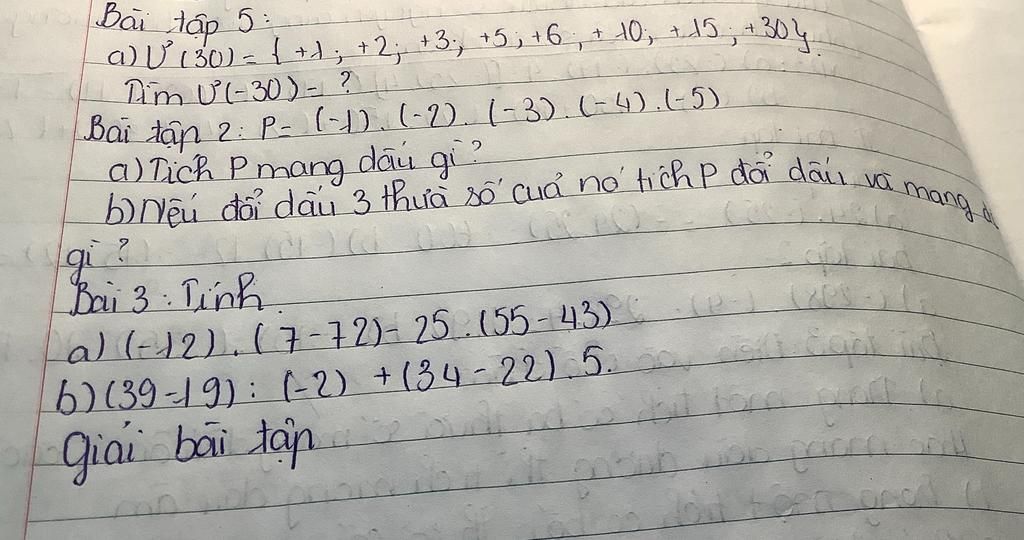 Bài tập 5:
a) Ư(30) = { +1; +2; +3; +5; +6; +10; +15; +30}
Tìm Ư(-30) = ?
Bài tập 2: P = (-1). (-2). (-3). (-4). (-5)
a) Tích P mang dấu gì?
b) Nếu đổi dấu 3 thừa số của nó tích P đổi dấu và mang
gì?
Bài 3: Tính
a) (-12). (7-72) - 25. (55-43)
b) (39-19): (-2) + (34-22). 5.
Giải bài tập